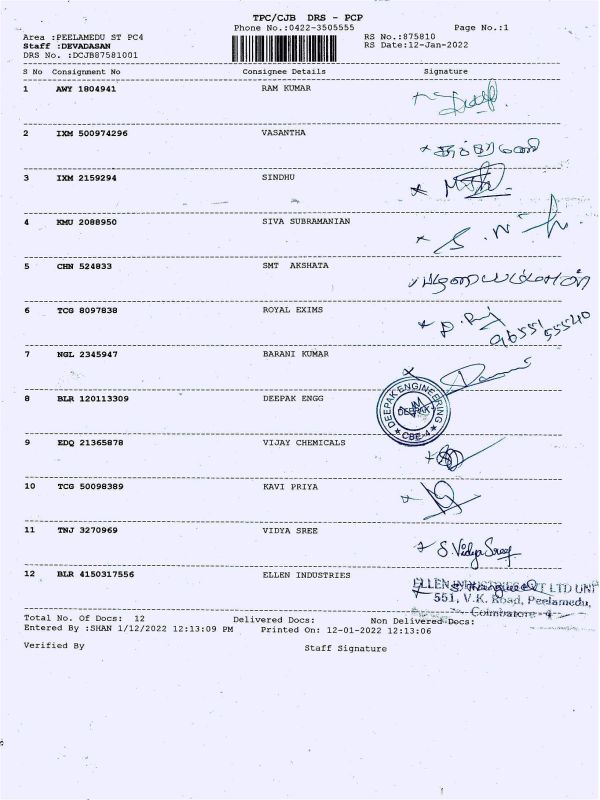 TPC/CJB DRS - PCP
Phone No.:0422-3505555 Page No.:1
Area :PEELAMEDU ST PC4 RS No.:875810
Staff :DEVADASAN RS Date:12-Jan-2022
DRS No. :DCJB87581001
S No Consignment No Consignee Details Signature
1 AWY 1804941 RAM KUMAR
2 IXM 500974296 VASANTHA
3 IXM 2159294 SINDHU
4 KMU 2088950 SIVA SUBRAMANIAN
5 CHN 524833 SMT AKSHATA
6 TCG 8097838 ROYAL EXIMS
7 NGL 2345947 BARANI KUMAR
8 BLR 120113309 DEEPAK ENGG
DEEPAK ENGINEERING
DEEPAK
CBE-4
9 EDQ 21365878 VIJAY CHEMICALS
10 TCG 50098389 KAVI PRIYA
11 TNJ 3270969 VIDYA SREE S. Vidya Sree
12 BLR 4150317556 ELLEN INDUSTRIES
551, V.K. Road, Peelamedu,
Coimbatore
Total No. Of Docs: 12 Delivered Docs: Non Delivered Docs:
Entered By :SHAN 1/12/2022 12:13:09 PM Printed On: 12-01-2022 12:13:06
Verified By Staff Signature